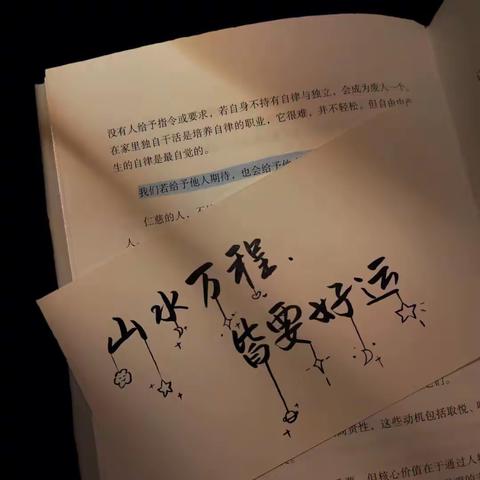 没有人给予指令或要求，若自身不持有自律与独立，会成为废人一个。
在家里独自干活是培养自律的职业，它很难，并不轻松。但自由中产
生的自律是最自觉的。
我们若给予他人期待，也会给予他
仁慈的人，不
人。
山水万程，
皆要好运
贵性，这些动机包括取悦、
但核心价值在于通过人